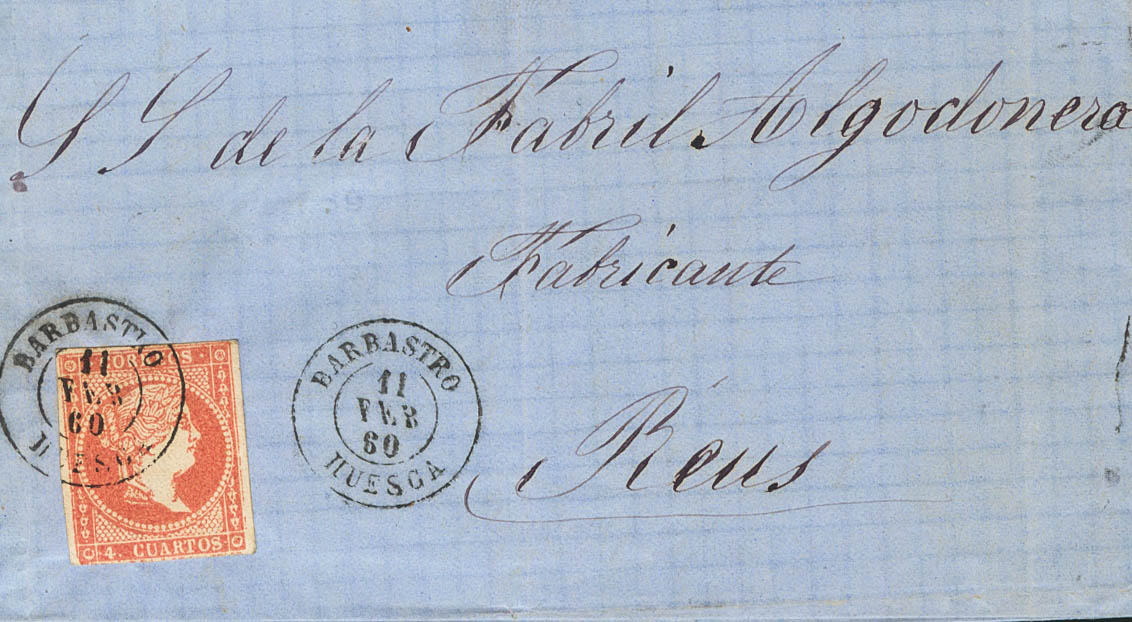 S S de la Fabril Algodonera
Fabricante
Reus
BARBASTRO
11
FEB
60
HUESCA
BARBASTRO
11
FEB
60
HUESCA
CORREOS
4. CUARTOS